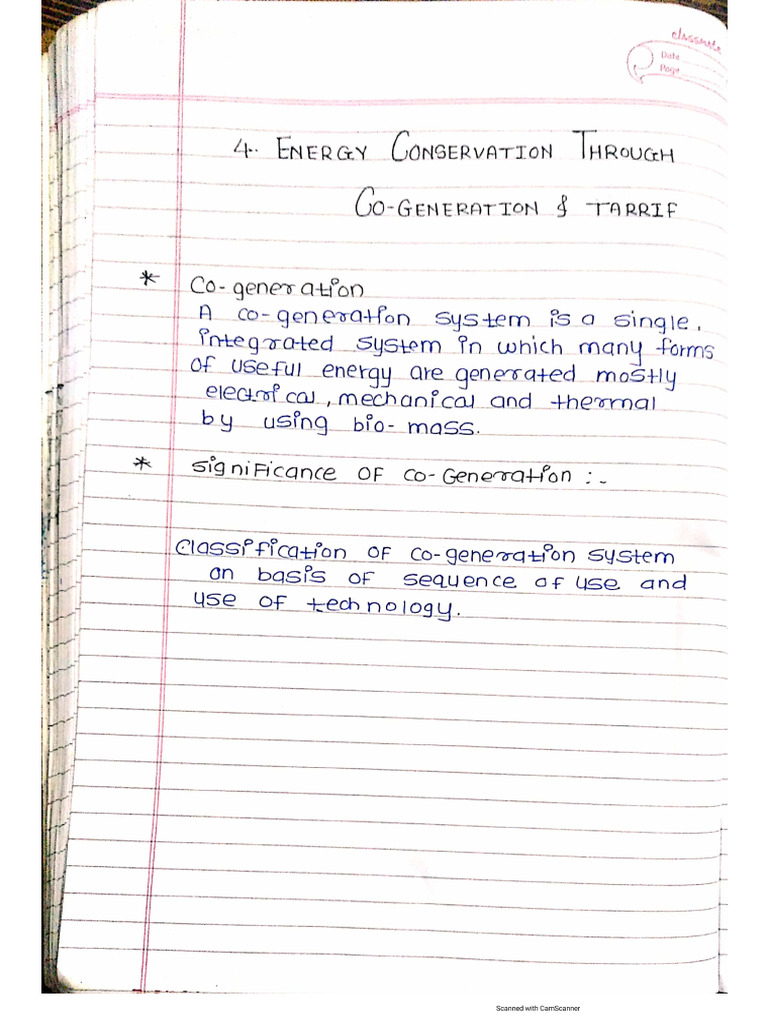 classmate
Date
Page
4. ENERGY CONSERVATION THROUGH
CO-GENERATION & TARRIF
* Co-generation
A co-generation system is a single,
integrated system in which many forms
of useful energy are generated mostly
electrical, mechanical and thermal
by using bio-mass.
* Significance of co-Generation :-
Classification of co-generation system
on basis of sequence of use and
use of technology.
Scanned with CamScanner